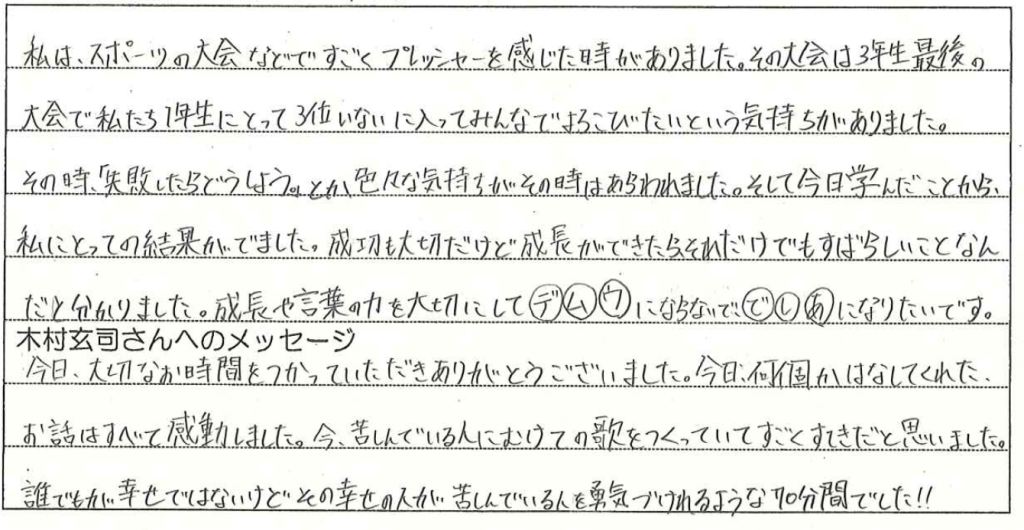 私は、スポーツの大会などですごくプレッシャーを感じた時がありました。その大会は3年生最後の
大会で私たち1年生にとって3位いないに入ってみんなでよろこびたいという気持ちがありました。
その時、「失敗したらどうしよう。」とか、色々な気持ちがその時はあらわれました。そして今日学んだことから、
私にとっての結果がでました。成功も大切だけど成長ができたらそれだけでもすばらしいことなん
だと分かりました。成長や言葉の力を大切にしてデムウにならないで、でしあになりたいです。
木村玄司さんへのメッセージ
今日、大切なお時間をつかっていただきありがとうございました。今日、何個かはなしてくれた、
お話はすべて感動しました。今、苦しんでいる人にむけての歌をつくっていてすごくすてきだと思いました。
誰でもが幸せではないけどその幸せの人が苦しんでいる人を勇気づけれるような70分間でした!!